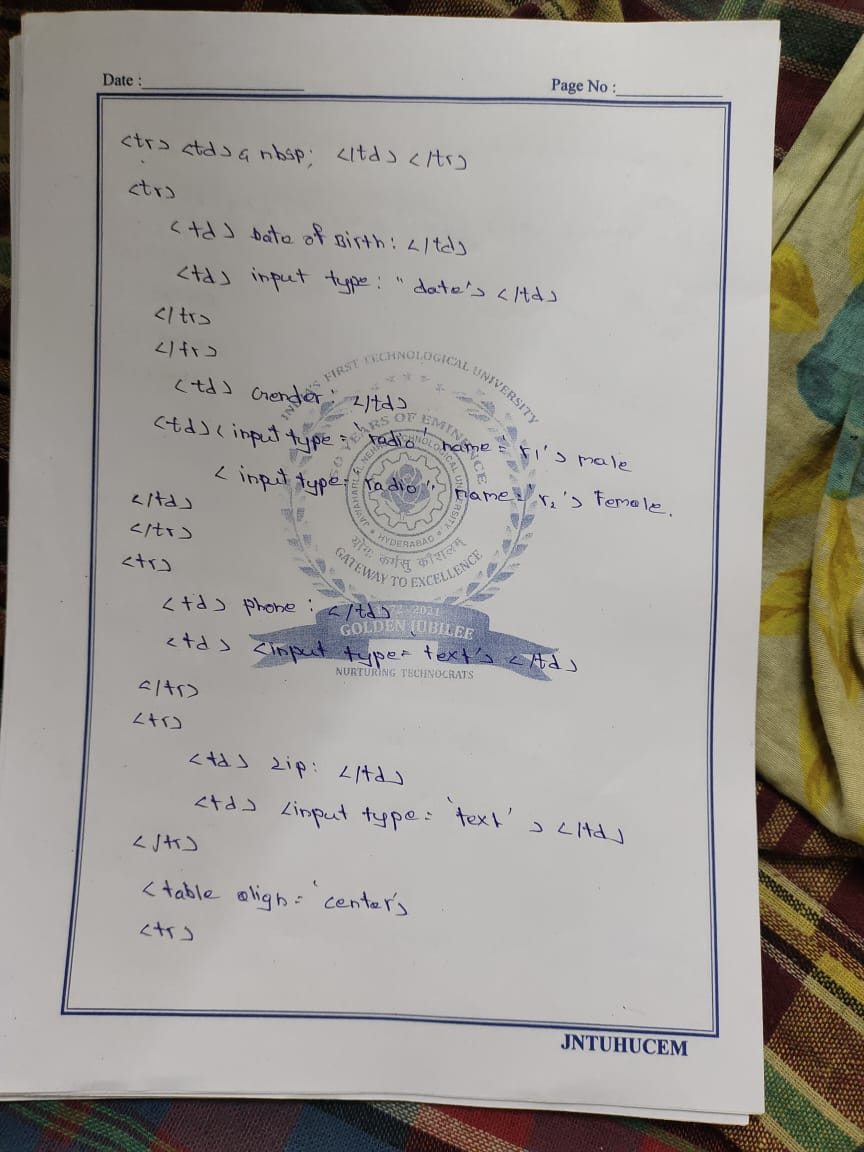 Date :
Page No :
<tr> <td> & nbsp; </td> </tr>
<tr>
<td> Date of Birth: </td>
<td> input type: "date'> </td>
</tr>
</tr>
<td> Gender: </td>
<td> <input type = 'radio' name = 'r1'> male
<input type = 'radio' name = 'r2'> Female.
</td>
</tr>
<tr>
<td> phone : </td>
<td> <input type = 'text'> </td>
</tr>
<tr>
<td> zip: </td>
<td> <input type = 'text' > </td>
</tr>
<table align = 'center'>
<tr>
INDIA'S FIRST TECHNOLOGICAL UNIVERSITY
50 YEARS OF EMINENCE
JAWAHARLAL NEHRU TECHNOLOGICAL UNIVERSITY
HYDERABAD
योगः कर्मसु कौशलम्
GATEWAY TO EXCELLENCE
1972-2021
GOLDEN JUBILEE
NURTURING TECHNOCRATS
JNTUHUCEM